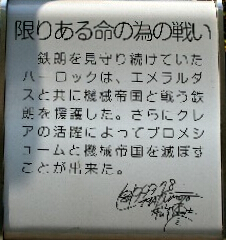 限りある命の為の戦い
　鉄朗を見守り続けていた
ハーロックは、エメラルダ
スと共に機械帝国と戦う鉄
朗を援護した。さらにクレ
アの活躍によってプロメシ
ュームと機械帝国を滅ぼす
ことが出来た。